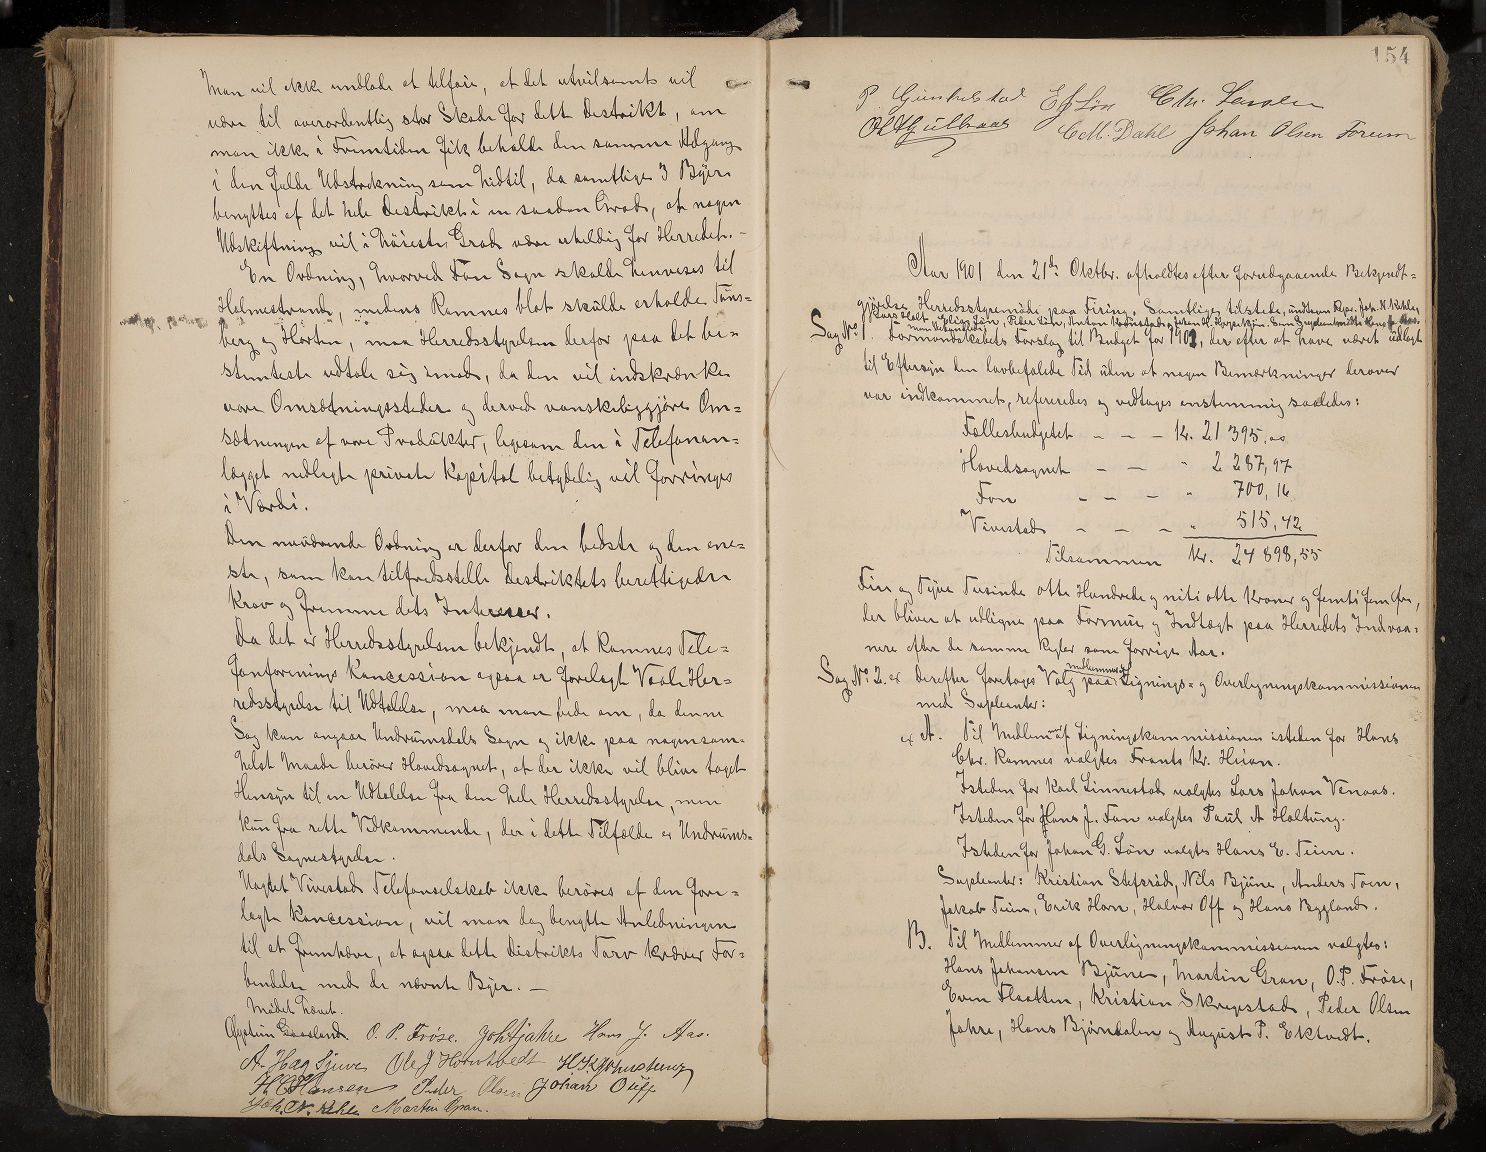 Man vil ikke undlade at tilføie, at det utvilsomt vil
være til overordentlig stor Skade for dette Destrikt, om
man ikke i Fremtiden fik beholde den samme Adgang
i den fulde Udstrekning som hidtil, da samtlige 3 Byer
benyttes af det hele Destrikt i en saadan Grad, at nogen
Udskiftning vil i høieste Grad være uheldig for Herredet. –
En Ordning, hvorved Fon Sogn skulde henvises til
Holmestrand, medens Ramnes blot skulde erholde Töns=
berg og "Horten", maa Herredsstyrelsen derfor paa det be=
stemteste udtale sig imod, da den vil indskrænke
vore Omsætningssteder og derved vanskeliggjøre Om=
sætningen af vore Produkter, ligesom den i Telefonan=
lægget nedlagte private Kapital betydelig vil forringes
i Værdi.
Den nuværende Ordning er derfor den bedste og den ene=
ste, som kan tilfredsstille Destriktets berettigede
Krav og fremme dets Interesser.
Da det er Herredsstyrelsen bekjendt, at Ramnes Tele=
fonforenings Koncession ogsaa er forelagt Vaale Her=
redsstyrelse til Udtalelse, maa man bede om, da denne
Sag kun angaar Undrumsdals Sogn og ikke paa nogensom=
helst Maade berører Hovedsognet, at der ikke vil blive taget
Hensyn til en Udtalelse fra den hele Herredsstyrelse, men
kun fra rette Vedkommende, der i dette Tilfælde er Undrums=
dals Sognestyrelse.
Uagtet Vivestad Telefonselskab ikke berøres af den fore=
lagte Koncession, vil man dog benytte Anledningen
til at fremhæve, at ogsaa dette Destrikts Tarv kræver For=
bindelse med de nævnte Byer. –
Mødet hævet.
O. P. Frøse. Hans J. Aas.
Ole J Horntvedt
H. Hansen Peder Olsen Johan
Martin Gran.
154
P. Gjerrelstad Chr.
C. M. Dahl Johan Olsen
Aar 1901 den 21de Oktbr. afholdtes efter forudgaaende Bekjendt=
gjørelse Herredsstyremøde paa Firing. Samtlige tilstede, undtagen Repr. Joh. N.
Sag No. 1. Formandskabets Forslag til Budget for 1902, der efter at have været udlagt
til Eftersyn den lovbefalede Tid uden at nogen Bemærkninger derover
var indkommet, refereredes og vedtoges enstemmig saaledes:
Fællesbudgetet – – – Kr. 21 395.00
Hovedsognet – – " 2 287,97
Fon – – – " 700,16
Vivestad – – – " 515,42
Tilsammen Kr. 24 898,55
Fire og Tyve Tusinde otte Hundrede og nitiotte Kroner og femtifem Øre,
der bliver at udligne paa Formue og Indtægt paa Herredets Indvaa=
nere efter de samme Regler som forrige Aar.
Sag No. 2. Derefter foretoges Valg paa medlemmer af Ligning's= og Overligningskommissionen
med Supleanter:
A. Til Medlem af Ligningskommissionen isteden for Hans
Chr. Ramnes valgtes Frants Kr. Hiian.
Isteden for Karl Linnestad valgtes Lars Johan Venaas.
Isteden for Hans J. Fon valgtes Paul A Holtung.
Isteden for Johan G. Løn valgtes Hans E. Teien.
Supleanter: Kristian Stefsrød, Nils Bjune, Anders Foen,
Jakob Teien, Erik Horn, Halvor Off og Hans Bygland.
B. Til Medlemmer af Overligningskommissionen valgtes:
Hans Johansen Bjune, Martin Gran, O. P. Frøse,
Even Flaatten, Kristian Skregestad, Peder Olsen
Jahre, Hans Bjørndalen og August P. Ektvedt.